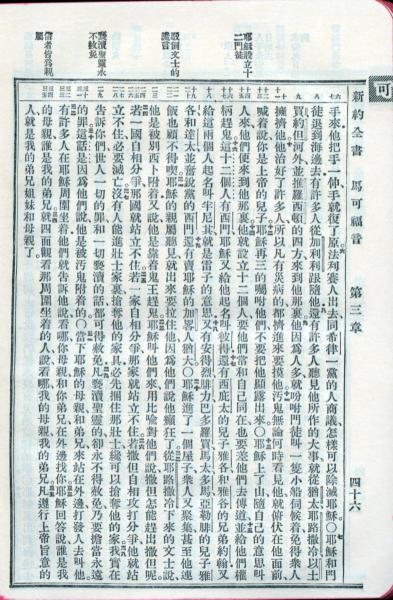 可
新約全書 馬可福音 第三章 四十六
手來他把手一伸手就復了原法利賽人出去同希律一黨的人商議怎樣可以除滅耶穌〇耶穌和門
徒退到海邊去有許多人從加利利跟隨他還有許多人聽見他所作的大事就從猶太耶路撒冷以土
買約但河外並推羅西頓的四方來到他那裏他因為人多就吩咐門徒叫一隻小船伺候着免得眾人
擁擠他他治好了許多人所以凡有災病的都擠進來要摸他污鬼無論何時看見他就俯伏在他面前
喊着說你是上帝的兒子耶穌再三的囑咐他們不要把他顯露出來〇耶穌上了山隨自己的意思叫
人來他們便來到他那裏他就設立十二個人要他們常和自己同在也要差他們去傳道並給他們權
柄趕鬼這十二個人有西門耶穌又給他起名叫彼得還有西庇太的兒子雅各和雅各的兄弟約翰又
給這兩個人起名叫半尼其就是雷子的意思又有安得烈腓力巴多羅買馬太多馬亞勒腓的兒子雅
各和達太並奮銳黨的西門還有賣耶穌的加畧人猶大〇耶穌進了一個屋子眾人又聚集甚至他連
飯也顧不得喫耶穌的親屬聽見就出來要拉住他因為他們說他癲狂了從耶路撒冷下來的文士說
他是被別西卜附着又說他是靠着鬼王趕鬼耶穌叫他們來用比喻對他們說撒但怎能趕出撒但呢
若一國自相分爭那國就站立不住若一家自相分爭那家就站立不住若撒但自相攻打分爭他就站
立不住必要滅亡沒有人能進壯士家裏搶奪他的家具必先捆住那壯士纔可以搶奪他的家我實在
告訴你們世人一切的罪和一切褻瀆的話都可得赦免凡褻瀆聖靈的卻永不得赦免乃要擔當永遠
的罪這話是因為他們說他是被污鬼附着的〇當下耶穌的母親和弟兄來站在外邊打發人去叫他
有許多人在耶穌周圍坐着他們就告訴他說看哪你母親和你弟兄在外邊找你耶穌回答說誰是我
的母親誰是我的弟兄就四面觀看那周圍坐着的人說看哪我的母親我的弟兄凡遵行上帝旨意的
人就是我的弟兄姐妹和母親了
耶穌設立十
二門徒
駁倒文士的
讒言
褻瀆聖靈永
不赦免
信者皆為親
屬